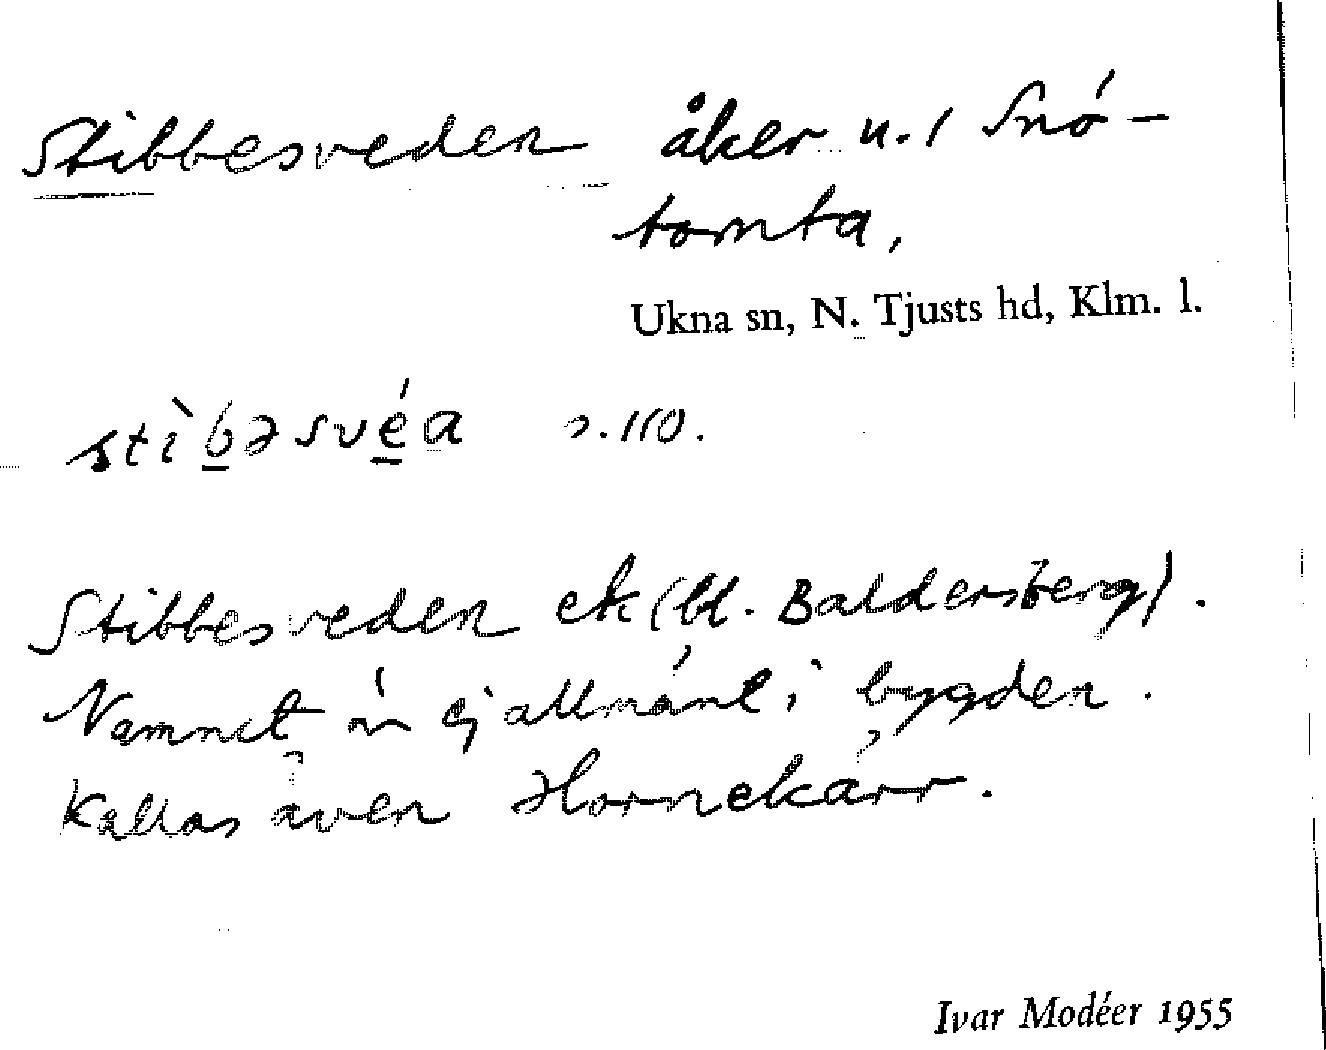 Stibbesveden åker u. / Snö-
tomta,
Ukna sn, N. Tjusts hd, Klm. l.
stìbəsvéa s. 110.
Stibbesveden ek (bl. Baldersberg).
Namnet är ej allmänt i bygden.
Kallas även Hornekärr.
Ivar Modéer 1955